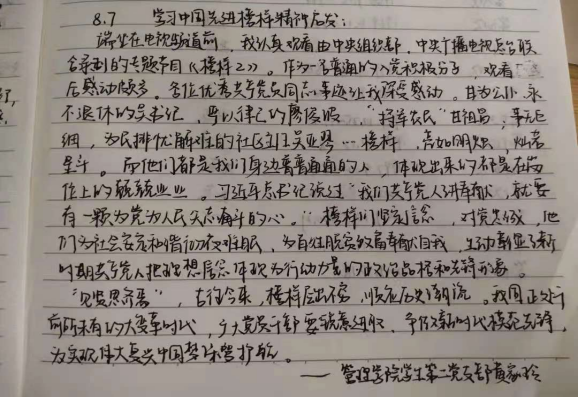 8.7 学习中国先进模样精神启发：
端坐在电视频道前，我认真观看由中央组织部，中央广播电视总台联
合录制的专题节目《榜样2》。作为一名普通的入党积极分子，观看
后感动颇多。各位优秀共产党员同志事迹让我深受感动。
不退休的吴书记，严以律己的廖俊波 "将军农民"甘祖昌，事无巨
细，为民排忧解难的社区主任吴亚琴…榜样，亮如明烛，灿若
星斗。而他们都是我们身边普普通通的人，体现出来的都是在岗
位上的兢兢业业。习近平总书记说过"我们共产党人讲奉献，就要
有一颗为党为人民矢志奋斗的心。"榜样们坚定信念，对党忠诚，他
们为社会安定和谐彻夜难眠，为百姓脱贫致富奉献自我，生动彰显了新
时期共产党人把理想信念体现为行动力量的政治品格和先锋形象。
"见贤思齐焉"，古往今来，榜样层出不穷，顺应历史潮流。我国正处于
前所未有的大变革时代，广大党员干部要锐意进取，争做新时代模范先锋，
为实现伟大复兴中国梦保驾护航。
——管理学院学生第二党支部黄家玲